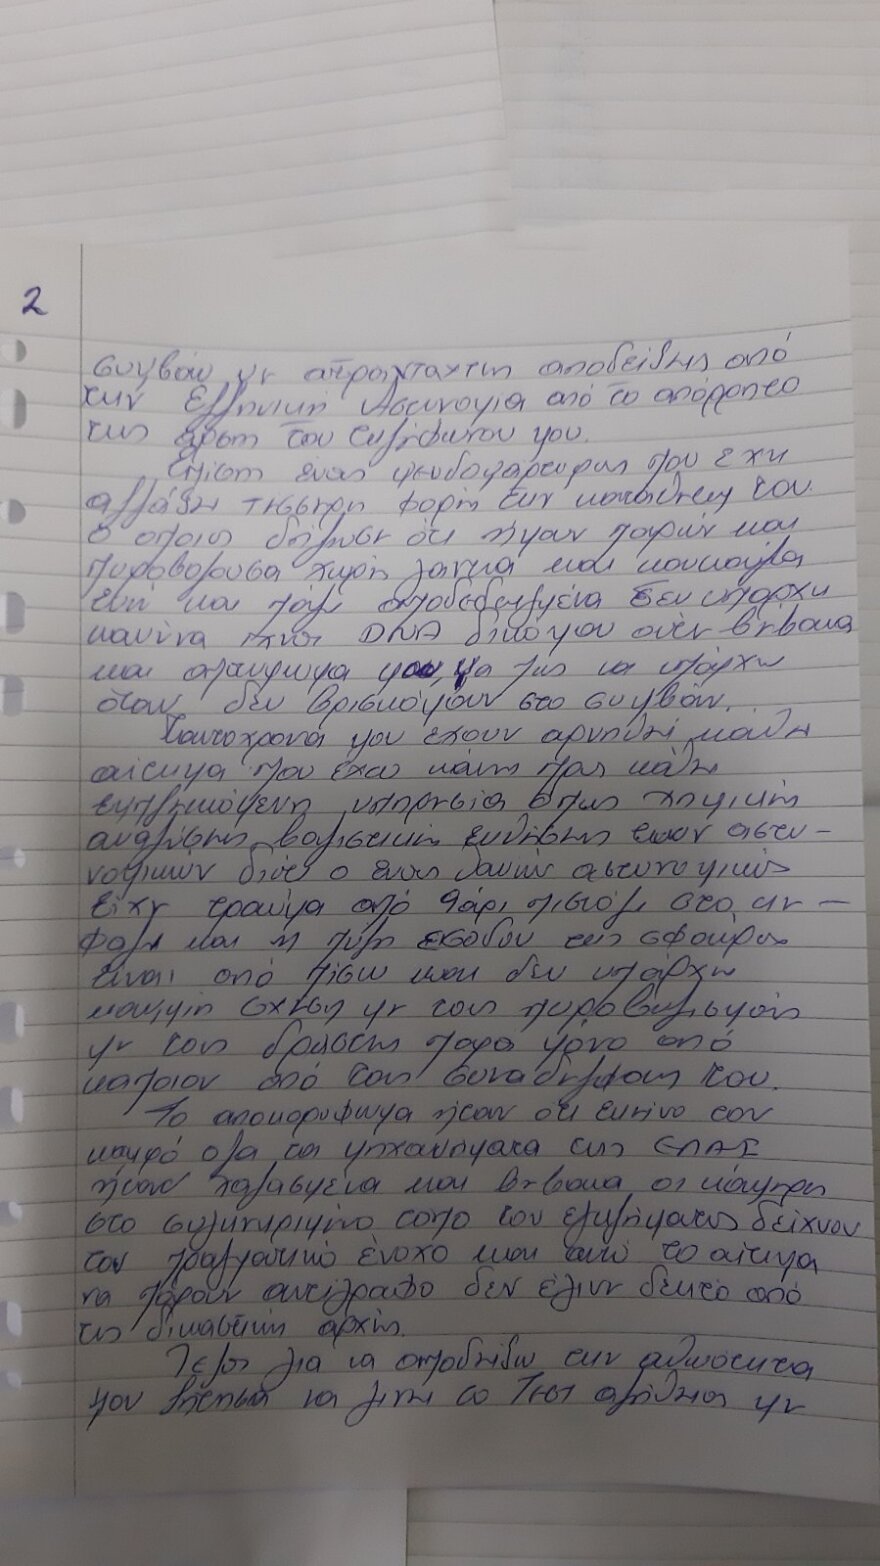 2
συμβάν με απρανταχτης αποδείξης από
την Ελληνική Αστυνομία από το απόρρητο
της άρση του τηλεφώνου μου.
Επίση ένας ψευδομάρτυρας που εχη
αλλάξη τεσσερη φορη την κατάθεση του.
Ο οποιος δήλωσε ότι ήμαν παρών και
πυροβολουσα χωρη γαντια και κουκουλα
εκη και πάλη αποδεδειγμένα δεν υπαρχη
κανένα DNA δικό μου ουτε βέβαια
και αποτυπωμα μου, μα πως να υπάρχη
όταν δεν βρισκόμουν στο συμβάν.
Ταυτοχρονα μου εχουν αρνηθεί κάθε
αίτημα που έχω κάνη προς κάθε
εμπλεκόμενη υπηρεσία όπως χημικής
αναλύσης βαλιστική ενδησης των αστυ-
νομικών διότι ο ένας θανών αστυνομικός
είχε τραύμα από 9άρι πιστόλι στο κε-
φαλι και η πύλη εισοδου της σφαίρας
είναι από πίσω και δεν υπάρχη
καμμιη σχεση με τους πυροβολισμούς
με τους δράστες παρα μόνο από
καποιον από τους συναδέλφους του.
Το αποκορυφωμα ήταν ότι εκείνο τον
καιρό ολα τα μηχανήματα της ΕΛΑΣ
ήταν χαλασμένα και βεβαια οι κάμερες
στο συγκεκριμένο τοπο του εγκλήματος δείχνουν
τον πραγματικό ένοχο και αυτό το αίτημα
να πάρουν αντίγραφο δεν έγινε δεκτό από
τις δικαστική αρχής.
Τελος για να αποδείξω την αθωότητα
μου ζήτησα να γίνει το τεστ αλήθειας με